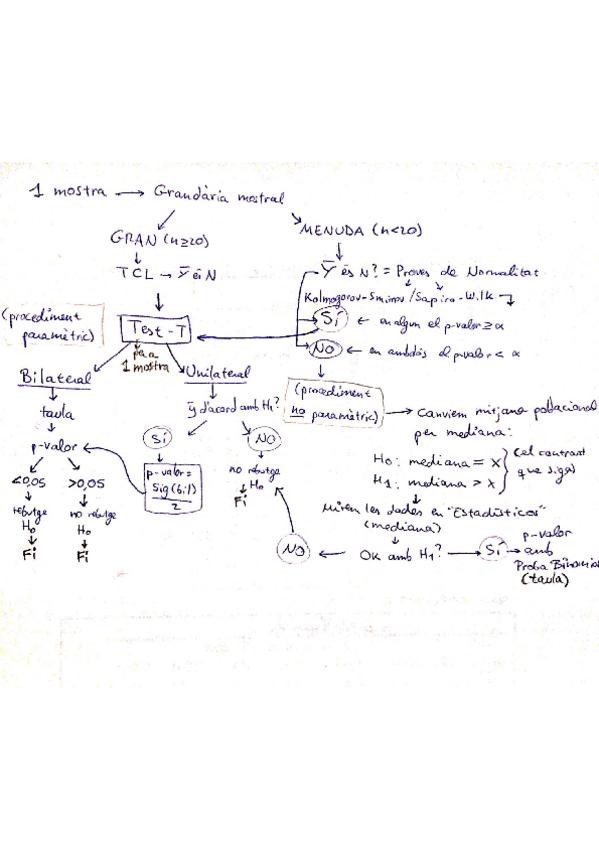 1 mostra → Grandària mostral
GRAN (n≥20)
MENUDA (n<20)
TCL → Ȳ és N
Ȳ és N? = Proves de Normalitat
Kolmogorov-Smirnov / Sapiro-Wilk
(procediment paramètric)
Test-T
per a 1 mostra
Sí ← en algun el p-valor ≥ α
No ← en ambdós el p-valor < α
Bilateral
Unilateral
taula
ȳ d'acord amb H1?
(procediment no paramètric) → Canviem mitjana poblacional
per mediana:
Sí
NO
p-valor
p-valor = Sig(bil) / 2
no rebutge
H0
Fi
H0: mediana = X
H1: mediana > X
(el contrast
que siga)
<0,05
>0,05
rebutge
H0
Fi
no rebutge
H0
Fi
Mirem les dades en "Estadísticos"
(mediana)
No ← OK amb H1? → Sí → p-valor
amb
Proba Binomial
(taula)